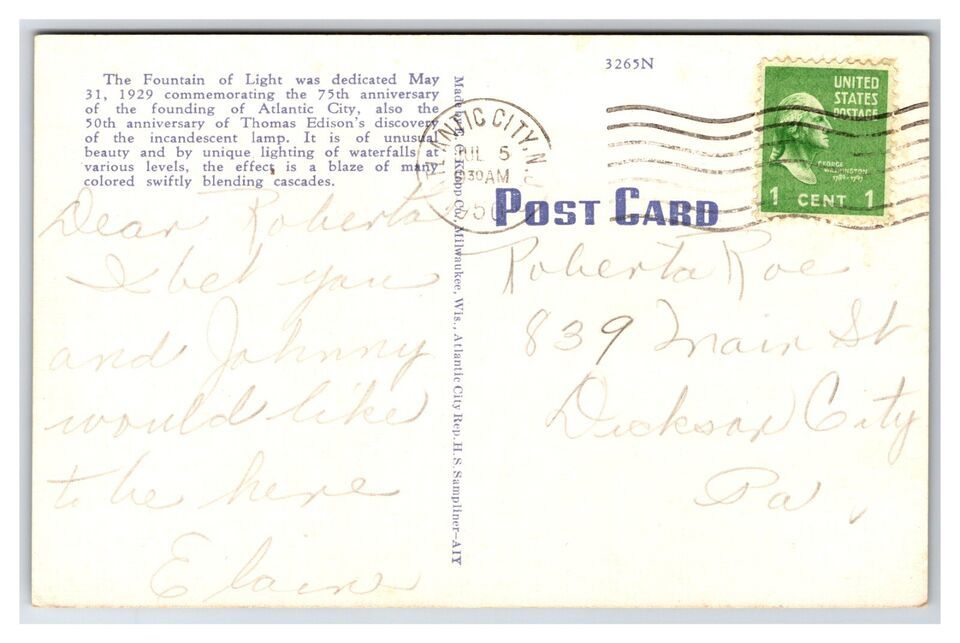 The Fountain of Light was dedicated May
31, 1929 commemorating the 75th anniversary
of the founding of Atlantic City, also the
50th anniversary of Thomas Edison's discovery
of the incandescent lamp. It is of unusual
beauty and by unique lighting of waterfalls at
various levels, the effect is a blaze of many
colored swiftly blending cascades.
Dear Roberta
I bet you
and Johnny
would like
to be here
Elaine
Made by E. C. Kropp Co., Milwaukee, Wis., Atlantic City Rep. H. S. Sampliner-AIY
3265N
ANTIC CITY, N.
JUL 5
930 AM
POST CARD
UNITED
STATES
POSTAGE
GEORGE
WASHINGTON
1789-1797
1 CENT 1
Roberta Roe
839 Main St
Dickson City
Pa,